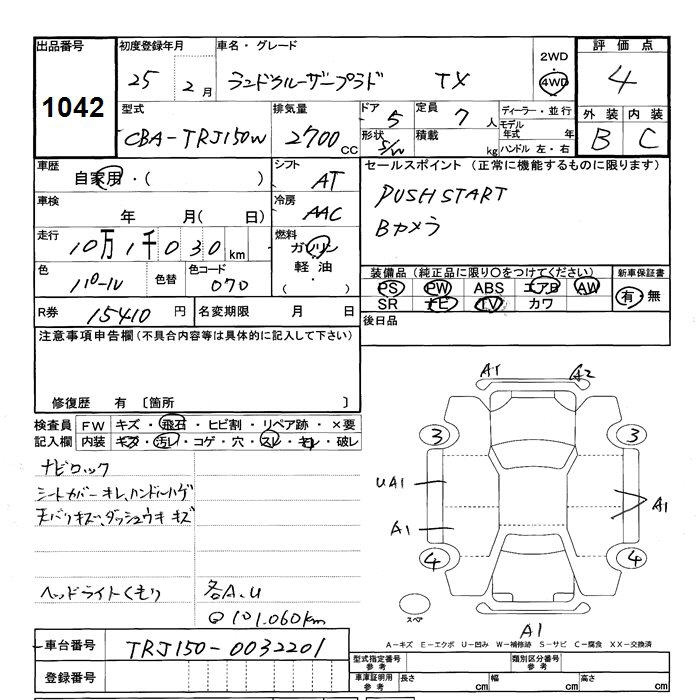 出品番号 初度登録年月 車名・グレード 2WD 評価点
1042 25年 2月 ランドクルーザープラド TX 4WD 4
型式 排気量 ドア 5 定員 7人 ディーラー・並行 外装 内装
CBA-TRJ150W 2700CC 形状 S/W 積載 kg モデル年式 年 B C
ハンドル 左・右
車歴 シフト セールスポイント(正常に機能するものに限ります)
自家用・( ) AT PUSH START
車検 冷房 Bカメラ
年 月(日) AAC
走行 燃料
10万1千030km ガソリン
軽油
( ・ )
色 色替 色コード 装備品(純正品に限り○をつけてください) 新車保証書
パール 070 PS PW ABS エアB AW 有・無
SR ナビ TV カワ
R券 15410円 名変期限 月 日 後日品
注意事項申告欄(不具合内容等は具体的に記入して下さい)
修復歴 有 〔箇所 〕
検査員 FW キズ・飛石・ヒビ割・リペア跡・×要
記入欄 内装 キズ・汚レ・コゲ・穴・スレ・キレ・破レ
ナビロック
シートカバーキレ,ハンドルハゲ
天バリキズ,ダッシュウキ キズ
ヘッドライトくもり 各A.U
@101.060km
A1 A2
3 3
UA1
A1 A1
4 4
スペア
A1
A－キズ E－エクボ U－凹み W－補修跡 S－サビ C－腐食 XX－交換済
車台番号 TRJ150-0032201
登録番号
型式指定番号 参考 類別区分番号 参考
車庫証明用 参考 長さ cm 幅 cm 高さ cm